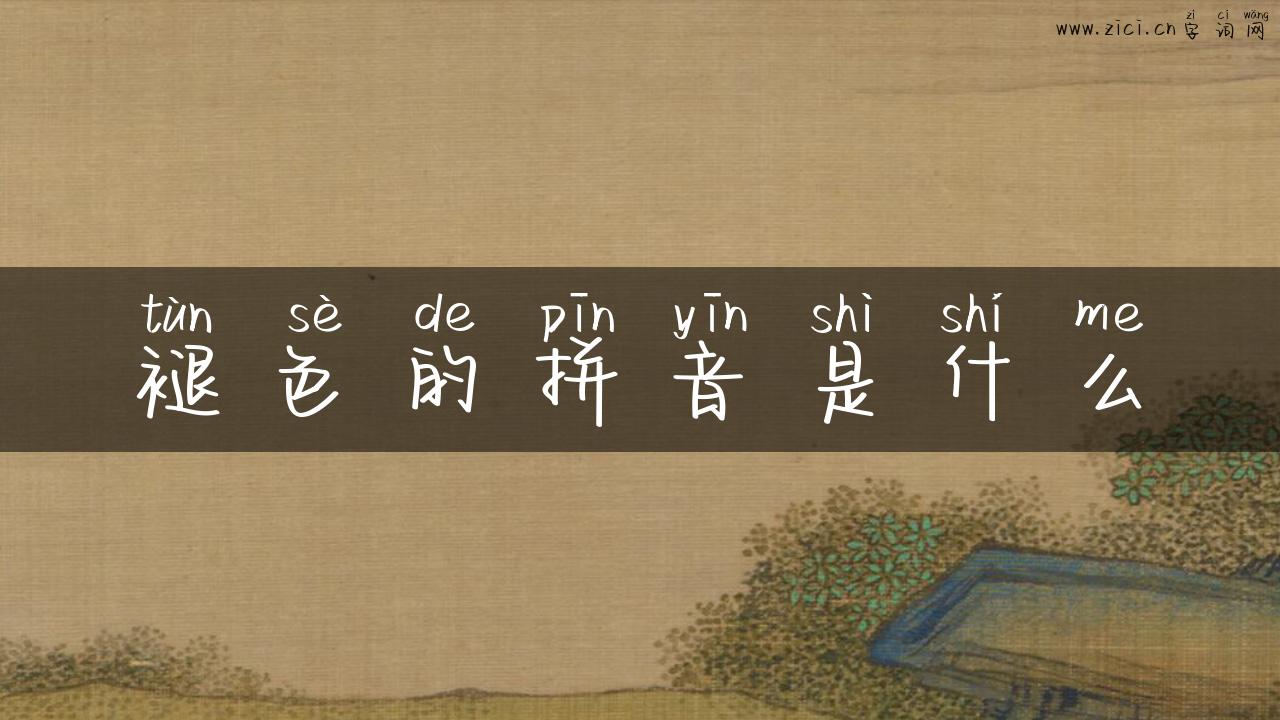 zì cí wǎng
www.zici.cn 字 词 网
tùn sè de pīn yīn shì shí me
褪 色 的 拼 音 是 什 么